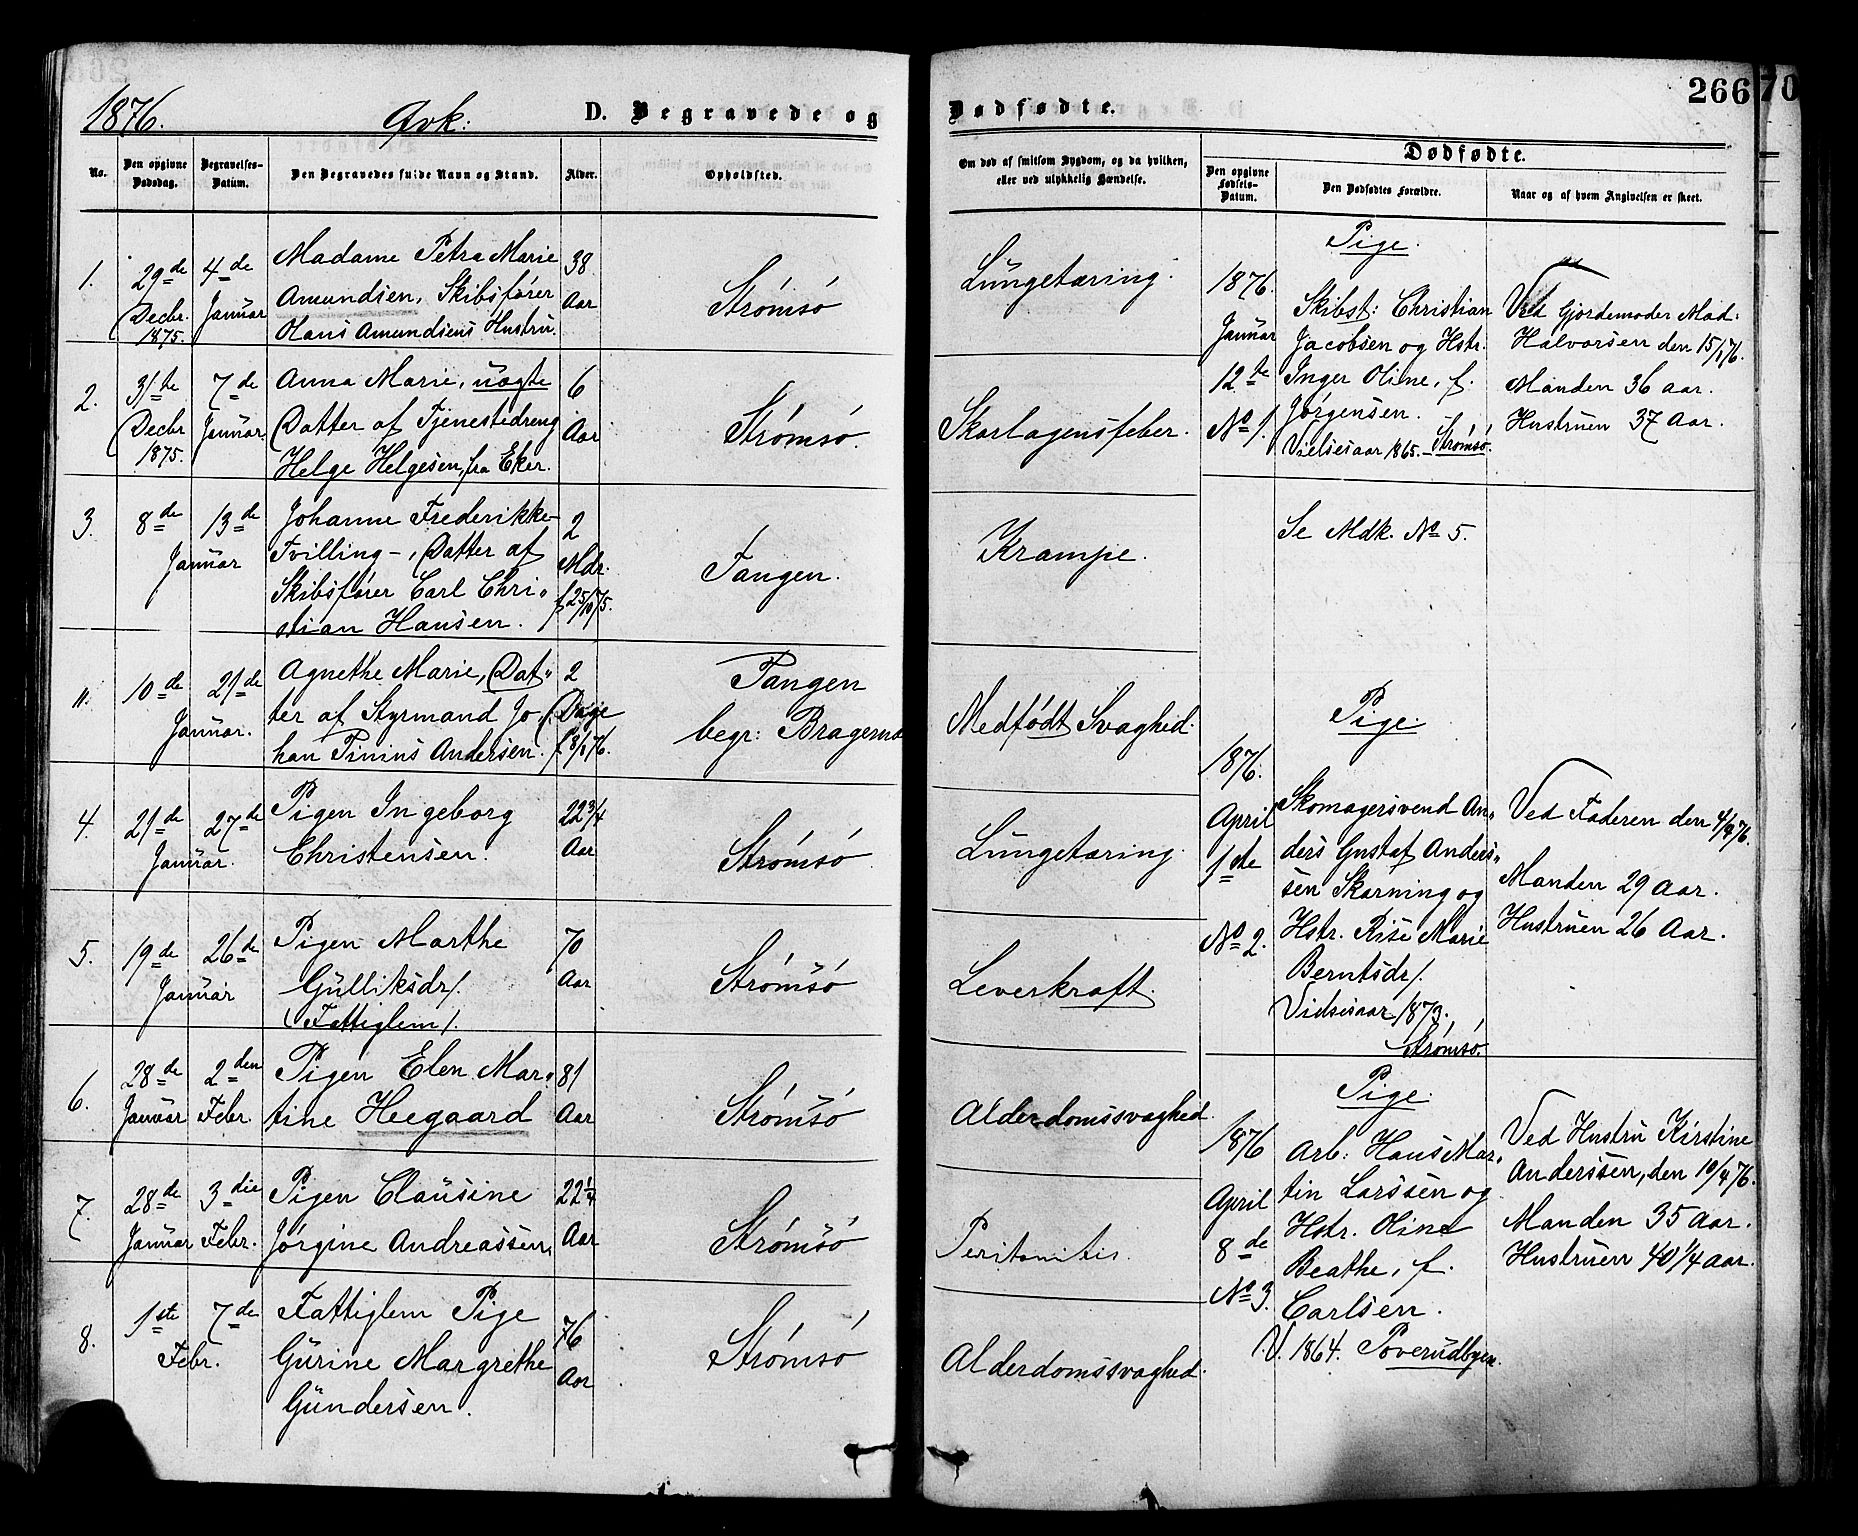 1876.
Qvk:
D. Begravede og
No.
Den opgivne Dødsdag.
Begravelses-Datum.
Den Begravedes fulde Navn og Stand.
Alder.
Opholdsted.
1.
29de Decbr. 1875.
4de Januar
Madame Petra Marie
Amundsen, Skibsfører
Hans Amundsens Hustru.
38 Aar
Strømsø
2.
31te Decbr 1875.
7de Januar.
Anna Marie, uægte
Datter af Tjenestedreng
Helge Helgesen, fra Eker.
6 Aar
Strømsø.
3.
8de
13de
Januar
Johanne Frederikke-
Tvilling-, Datter af
Skibsfører Carl Chri-
stian Hansen.
2 Mdr.
f 25/10 75.
Tangen.
10de
21de
Januar.
Agnethe Marie, Dat-
ter af Styrmand Jo-
han Pinius Andersen.
2 Dage
f. 8/1 76.
Tangen
begr: Bragernæs
4.
21de
27de
Januar.
Pigen Ingeborg
Christensen.
22 3/4 Aar
Strømsø.
5.
19de
26de
Januar
Pigen Marthe
Gulliksdr/.
(Fattiglem/.
70 Aar
Strømsø
6.
28de Januar
2den Febr.
Pigen Elen Mar-
tine Heegaard
81 Aar
Strømsø
7.
28de Januar
3die Febr.
Pigen Clausine
Jørgine Andreassen
22 1/4 Aar
Strømsø
8.
1ste
7de
Febr.
Fattiglem Pige
Gurine Margrethe
Gundersen.
76 Aar
Strømsø
Dødfødte.
266
70
Om død af smitsom Sygdom, og da hvilken,
eller ved ulykkelig Hændelse.
Dødfødte.
Den opgivne Fødsels-Datum.
Den Dødfødtes Forældre.
Naar og af hvem Angivelsen er skeet.
Lungetæring.
Skarlagensfeber.
Krampe.
Medfødt Svaghed.
Lungetæring.
Leverkræft.
Alderdomssvaghed.
Peritonitis.
Alderdomssvaghed.
1876.
Januar
12te
No 1.
Pige.
Skibst: Christian
Jacobsen og Hstr.
Inger Oline, f.
Jørgensen.
Vielsesaar 1865. Strømsø.
Ved Gjordemoder Mad:
Halvorsen den 15/1 76.
Manden 36 aar.
Hustruen 37 Aar.
Se Mdk. No 5.
1876.
April
1ste
No 2.
Pige.
Skomagersvend An-
ders Gustaf Anders-
sen Skarning og
Hstr. Rise Marie
Berntsdr/.
Vielsesaar 1873.
Strømsø.
Ved Faderen den 4/4 76.
Manden 29 Aar.
Hustruen 26 Aar.
1876
April
8de
No 3.
Pige.
Arb: Hans Mar-
tin Larssen og
Hstr. Oline
Beathe, f.
Carlsen.
V. 1864. Pøverudbyen.
Ved Hustru Kirstine
Anderssen, den 10/4 76.
Manden 35 Aar.
Hustruen 40 1/4 Aar.